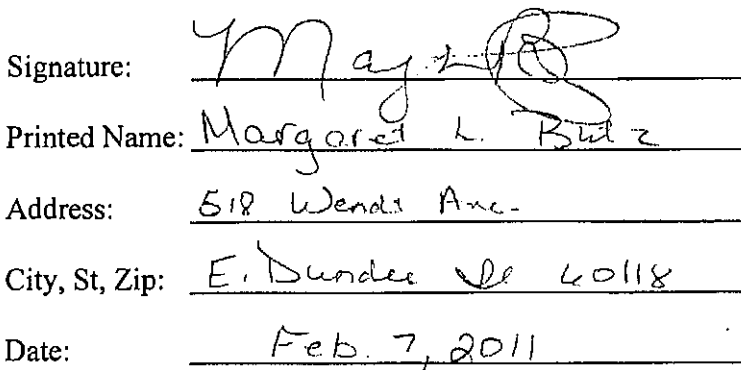 Signature:
Printed Name: Margaret L. Butz
Address: 518 Wendt Ave.
City, St, Zip: E. Dundee Il 60118
Date: Feb. 7, 2011